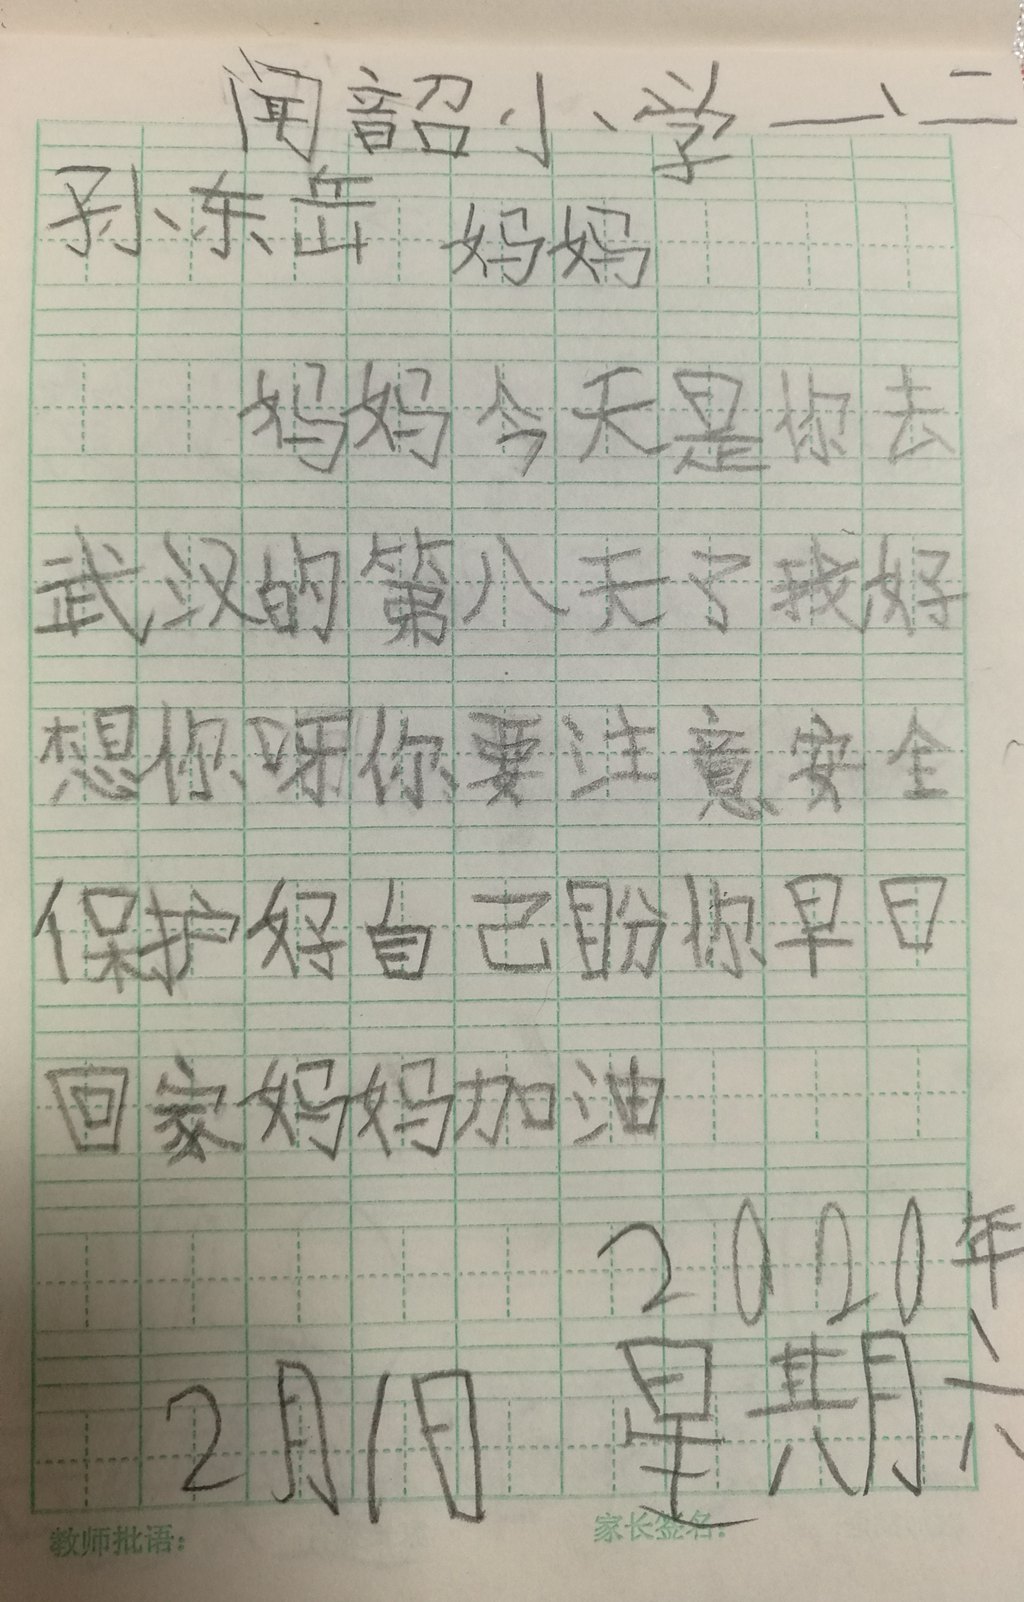 闻韶小学一、二
孙东岳 妈妈
妈妈今天是你去
武汉的第八天了我好
想你呀你要注意安全
保护好自己盼你早日
回家妈妈加油
2020年
2月1日 星期六
教师批语: 家长签名: